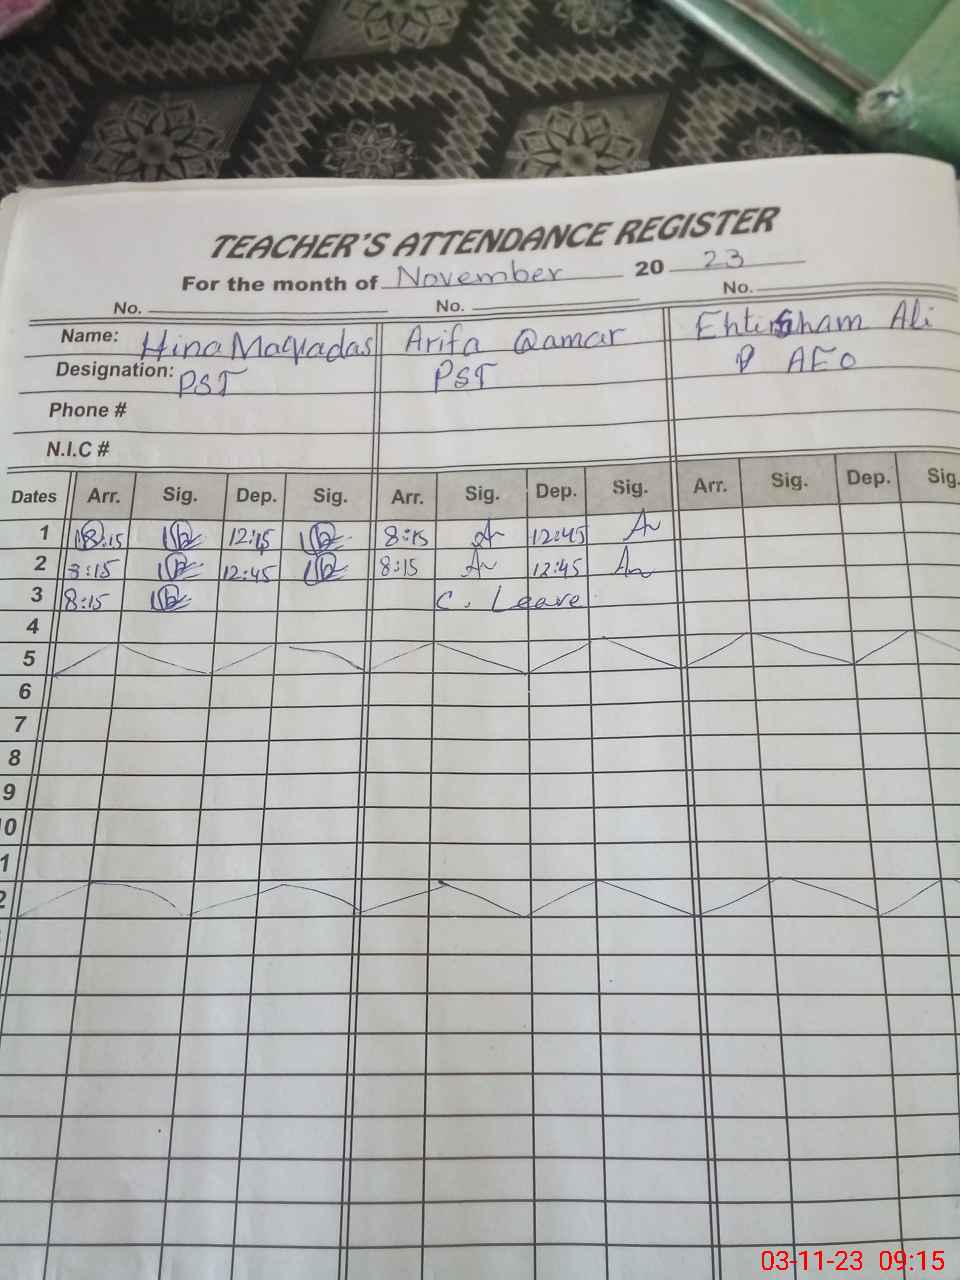 TEACHER'S ATTENDANCE REGISTER
For the month of November 2023
No. No. No.
Name: Hina Maqsadas Arifa Qamar Ehtisham Ali
Designation: PST PST AEO
Phone #
N.I.C #
Dates Arr. Sig. Dep. Sig. Arr. Sig. Dep. Sig. Arr. Sig. Dep. Sig.
1 8:15 12:45 8:15 12:45
2 8:15 12:45 8:15 12:45
3 8:15 C. Leave
4
5
6
7
8
9
10
11
12
03-11-23 09:15